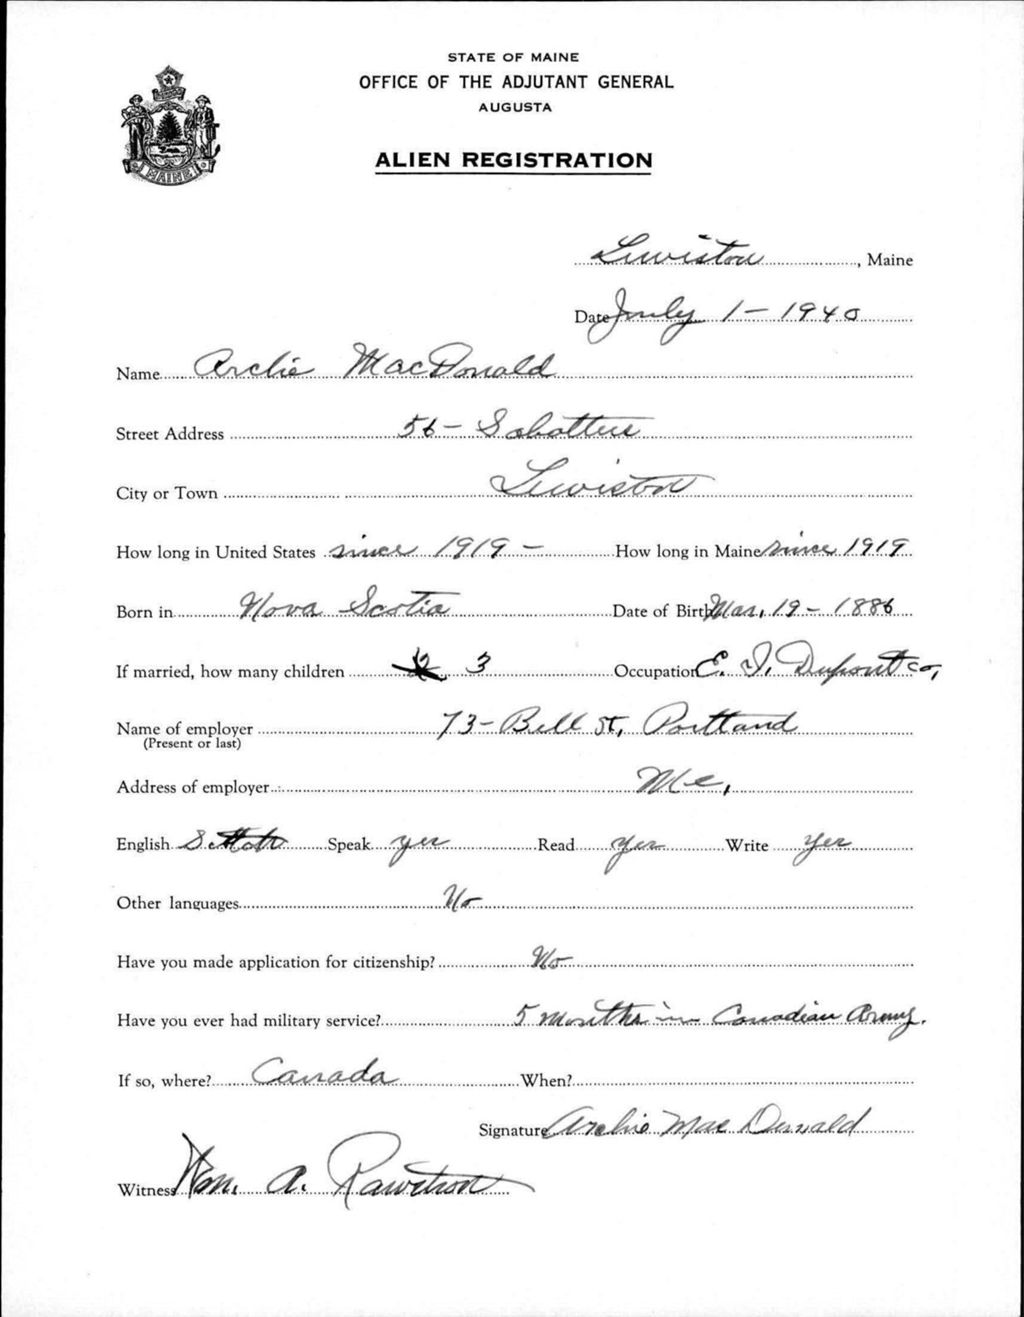 STATE OF MAINE
OFFICE OF THE ADJUTANT GENERAL
AUGUSTA
ALIEN REGISTRATION
MAINE
Lewiston, Maine
Date July 1 - 1940
Name Archie MacDonald
Street Address 56 - Sabattus
City or Town Lewiston
How long in United States since 1919 - How long in Maine since 1919
Born in Nova Scotia Date of Birth Mar. 19 - 1886
If married, how many children 3 Occupation E. I. Dupont Co,
Name of employer 73 - Bell St, Portland
(Present or last)
Address of employer Me,
English Speak yes Read yes Write yes
Other languages No
Have you made application for citizenship? No
Have you ever had military service? 5 months in Canadian Army.
If so, where? Canada When?
Signature Archie MacDonald
Witness Wm. A.